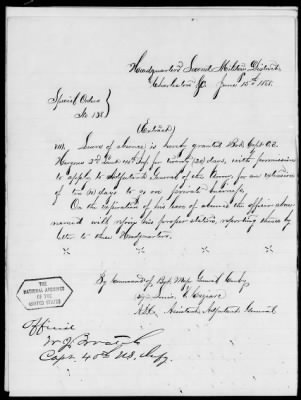 Headquarters Second Military District
Charleston S.C. June 15th 1868.
Special Orders
No 138
(Extract)
Leave of absence is hereby granted Bvt Capt
2nd Lieut Inf for twenty (20) days, with permission
to apply to Adjutant General of the Army for an extension
of ten (10) days to go on private business.
On the expiration of his leave of absence the officer above
named will rejoin his proper station, reporting thence by
letter to these Headquarters.
By Command of Bvt Maj General Canby
Louis V Caziarc
A.D.C. Assistant Adjutant General
THE
NATIONAL ARCHIVES
OF THE
UNITED STATES
Official
Capt. 40th U.S. Infy.